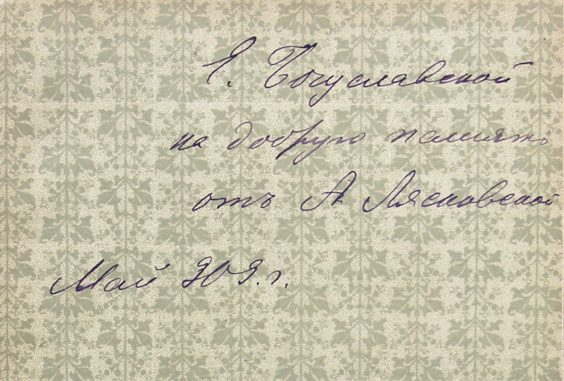 Е. Богуславской
на добрую память
отъ А. Лясковской
Май 909. г.